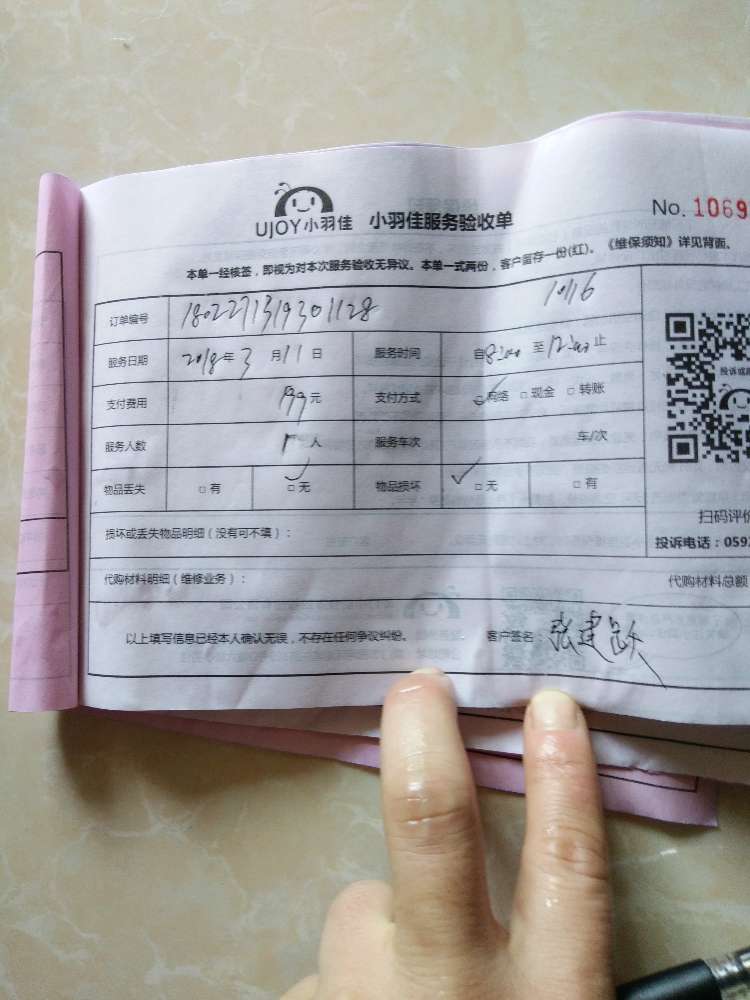 UJOY小羽佳 小羽佳服务验收单
No. 1069
本单一经核签，即视为对本次服务验收无异议。本单一式两份，客户留存一份(红)。《维保须知》详见背面。
订单编号 1802271319301128 10116
服务日期 2018年3月11日 服务时间 自8:00至12:00止
支付费用 199元 支付方式 ☑网络 □现金 □转账
服务人数 1人 服务车次 车/次
物品丢失 □有 ☑无 物品损坏 ☑无 □有
投诉或
扫码评价
损坏或丢失物品明细（没有可不填）：
投诉电话：059
代购材料明细（维修业务）： 代购材料总额
以上填写信息已经本人确认无误，不存在任何争议纠纷。 客户签名：张建跃